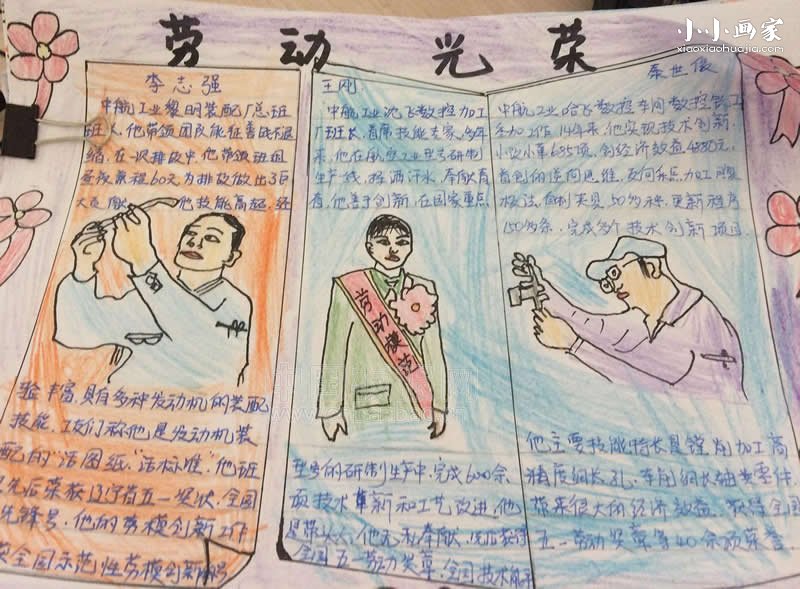 小小画家
xiaoxiaohuajia.com
劳动光荣
李志强
中航工业黎明装配厂总班
班长，他带领团队能征善战不退
缩，在一次排故中，他带领班组
为排故做出了巨
大贡献 他技能高超，经
验丰富，具有多种发动机的装配
技能，工友们称他是发动机装
配的“活图纸”“活标准”，他班
先后荣获辽宁省五一奖状、全国
先锋号，他的劳模创新工作
全国示范性劳模创新
王刚
中航工业沈飞数控加工
厂班长，首席技能专家，多年
来，他在航空工业型号研制
生产线，挥洒汗水，奉献青
春，他善于创新，在国家重点
型号的研制生产中，完成600余
项技术革新和工艺改进，他
是带头人，他无私奉献，先后获得
全国五一劳动奖章，全国技术能手
劳动模范
秦世俊
中航工业哈飞数控车间数控铣工
参加工作14年来，他实现技术创新、
小改小革685项，创经济效益4880万，
首创的逆向思维、反向采点加工
校法，自制夹具50多种，更新程序
150多条，完成多个技术创新项目
他主要技能特长是镗削加工高
精度细长孔、车削细长轴类零件
带来很大的经济效益，获得全国
五一劳动奖章等40余项荣誉